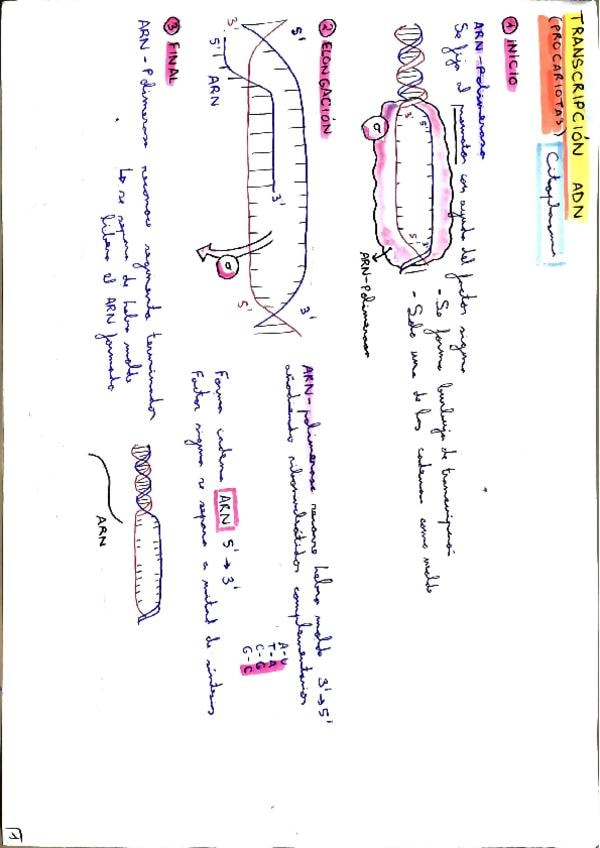 TRANSCRIPCIÓN ADN
(PROCARIOTAS) Citoplasma
① INICIO
ARN-Polimerasa
Se fija al promotor con ayuda del factor sigma
- Se forma burbuja de transcripción
- Solo una de las cadenas como molde
3'
5'
5'
3'
σ
ARN-Polimerasa
② ELONGACIÓN
5'
3'
3'
5'
ARN
3'
5'
σ
ARN-polimerasa recorre hebra molde 3'→5'
añadiendo ribonucleótidos complementarios
A-U
T-A
C-G
G-C
Forma cadena ARN 5'→3'
Factor sigma se separa a mitad de síntesis
③ FINAL
ARN-Polimerasa reconoce segmento terminador
↳ se separa de hebra molde
libera el ARN formado
ARN
1